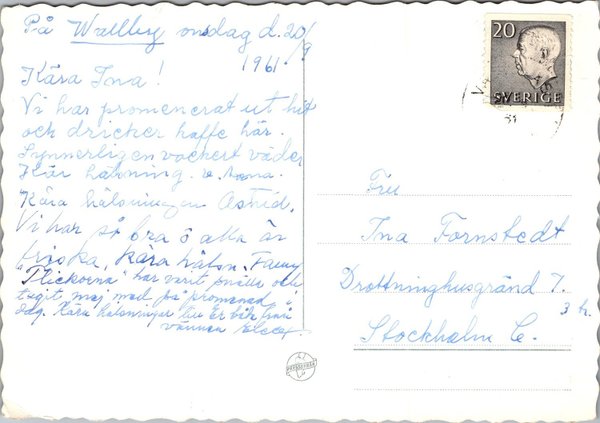 På Wallberg onsdag d. 20/9
1961.
Kära Ina!
Vi har promenerat ut hit
och dricker kaffe här.
Synnerligen vackert väder
Kär hälsning.
Kära hälsningar Astrid.
Vi har så bra o alla är
friska. Kära hälsn. Fanny
"Flickorna" har varit snälla och
tagit maj med på promenad i
dag. Kära hälsningar till Er båda från
vännen
Fru
Ina Fornstedt
Drottninghusgränd 7.
3 tr.
Stockholm C.
20
SVERIGE